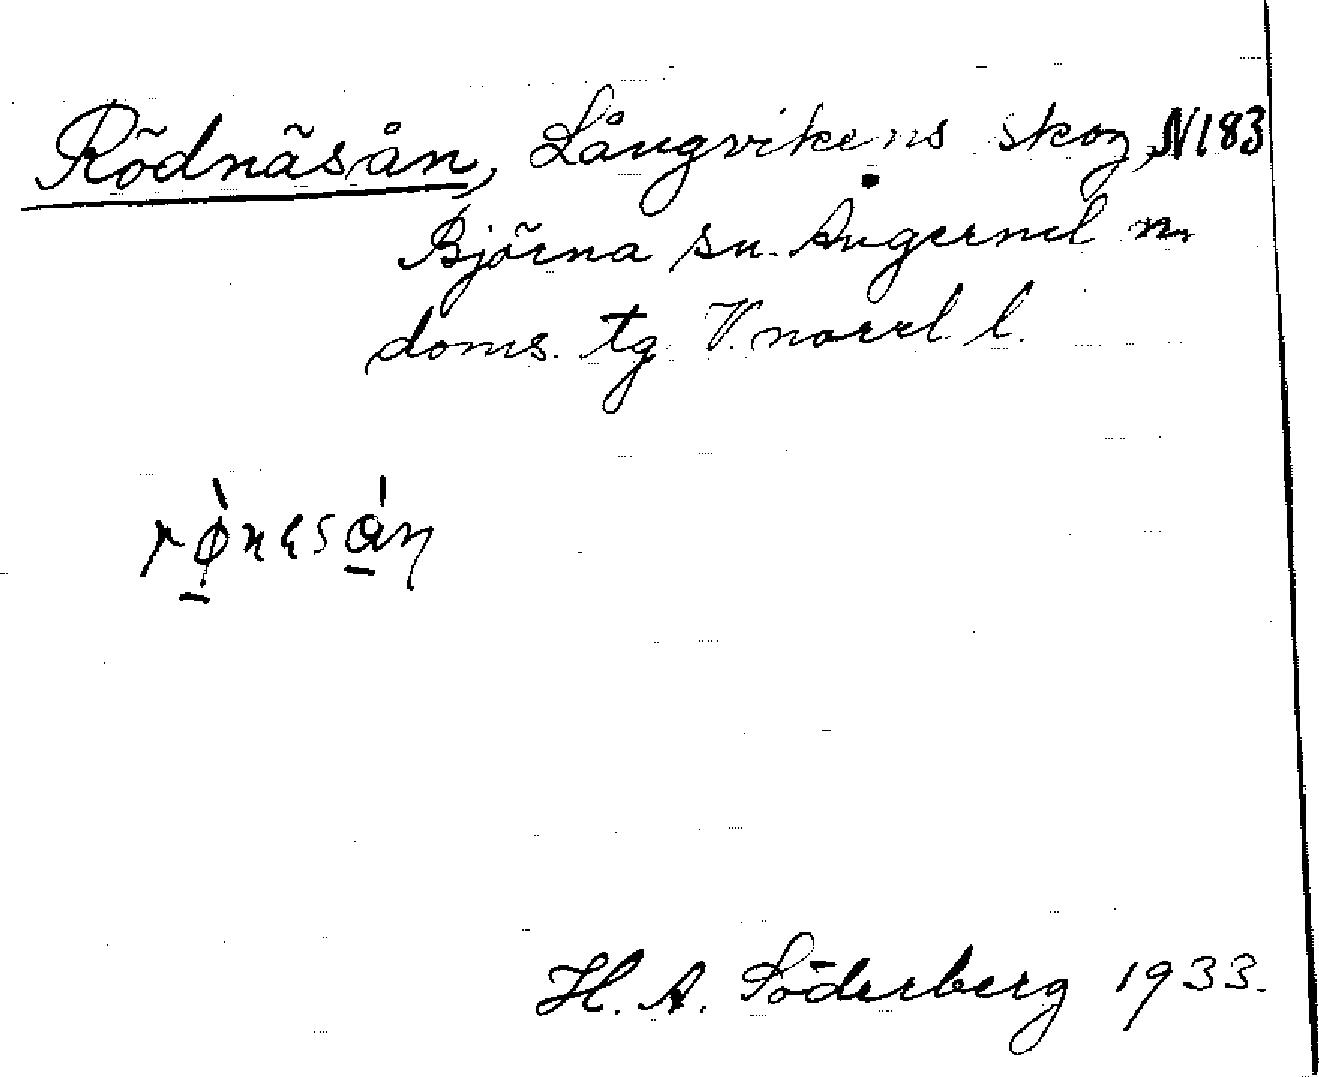 Rödnäsån, Långvikens skog, N183
Björna sn. Ångerml n.
doms. tg V. norrl. l.
rø̱̀nɛsǻ̱n
H. A. Söderberg 1933.